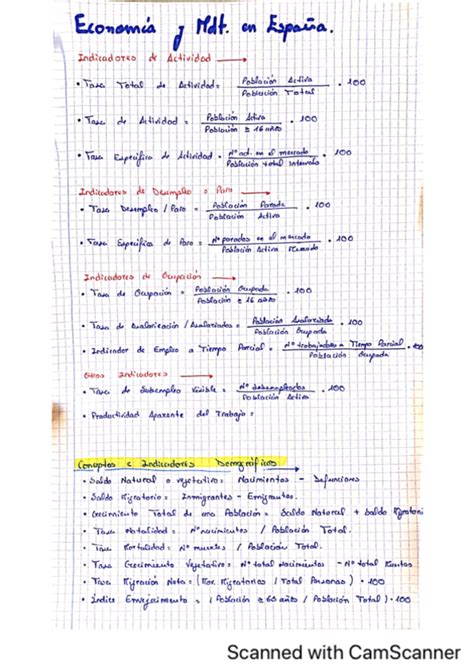 Economía y Mdt. en España.
Indicadores de Actividad →
• Tasa Total de Actividad = Población Activa / Población Total . 100
• Tasa de Actividad = Población Activa / Población ≥ 16 años . 100
• Tasa Específica de Actividad = Nº act. en el mercado / Población total Intervalo . 100
Indicadores de Desempleo o Paro →
• Tasa Desempleo / Paro = Población Parada / Población Activa . 100
• Tasa Específica de Paro = Nº parados en el mercado / Población Activa . 100
Indicadores de Ocupación →
• Tasa de Ocupación = Población Ocupada / Población ≥ 16 años . 100
• Tasa de Asalarización / Asalariados = Población Asalariada / Población Ocupada . 100
• Indicador de Empleo a Tiempo Parcial = Nº trabajadores a Tiempo Parcial / Población Ocupada . 100
Otros Indicadores →
• Tasa de Subempleo Visible = Nº subempleados / Población Activa . 100
• Productividad Aparente del Trabajo =
Conceptos e Indicadores Demográficos →
• Saldo Natural o vegetativo = Nacimientos - Defunciones
• Saldo Migratorio = Inmigrantes - Emigrantes.
• Crecimiento Total de una Población = Saldo Natural + Saldo Migratori
• Tasa Natalidad = Nº nacimientos / Población Total.
• Tasa Mortalidad = Nº muertes / Población Total.
• Tasa Crecimiento Vegetativo = Nº total Nacimientos - Nº total Muertes
• Tasa Migración Neta = ( Migratorios / Total Personas ) . 100
• Índice Envejecimiento = ( Población ≥ 65 años / Población Total ) . 100
Scanned with CamScanner